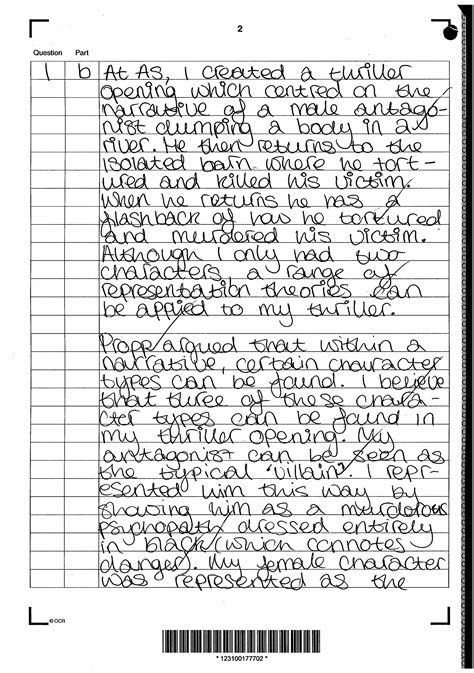 2
Question Part
1 b At AS, I created a thriller
opening which centred on the
narrative of a male antago-
nist dumping a body in a
river. He then returns to the
isolated barn where he tort-
ured and killed his victim.
When he returns he has a
flashback of how he tortured
and murdered his victim.
Although I only had two
characters, a range of
representation theories can
be applied to my thriller.
Propp argued that within a
narrative, certain character
types can be found. I believe
that three of these chara-
cter types can be found in
my thriller opening. My
antagonist can be seen as
the typical 'villain'. I repr-
esented him this way by
showing him as a murdorous
psychopath dressed entirely
in black (which connotes
danger). My female character
was represented as the
© OCR
* 123100177702 *